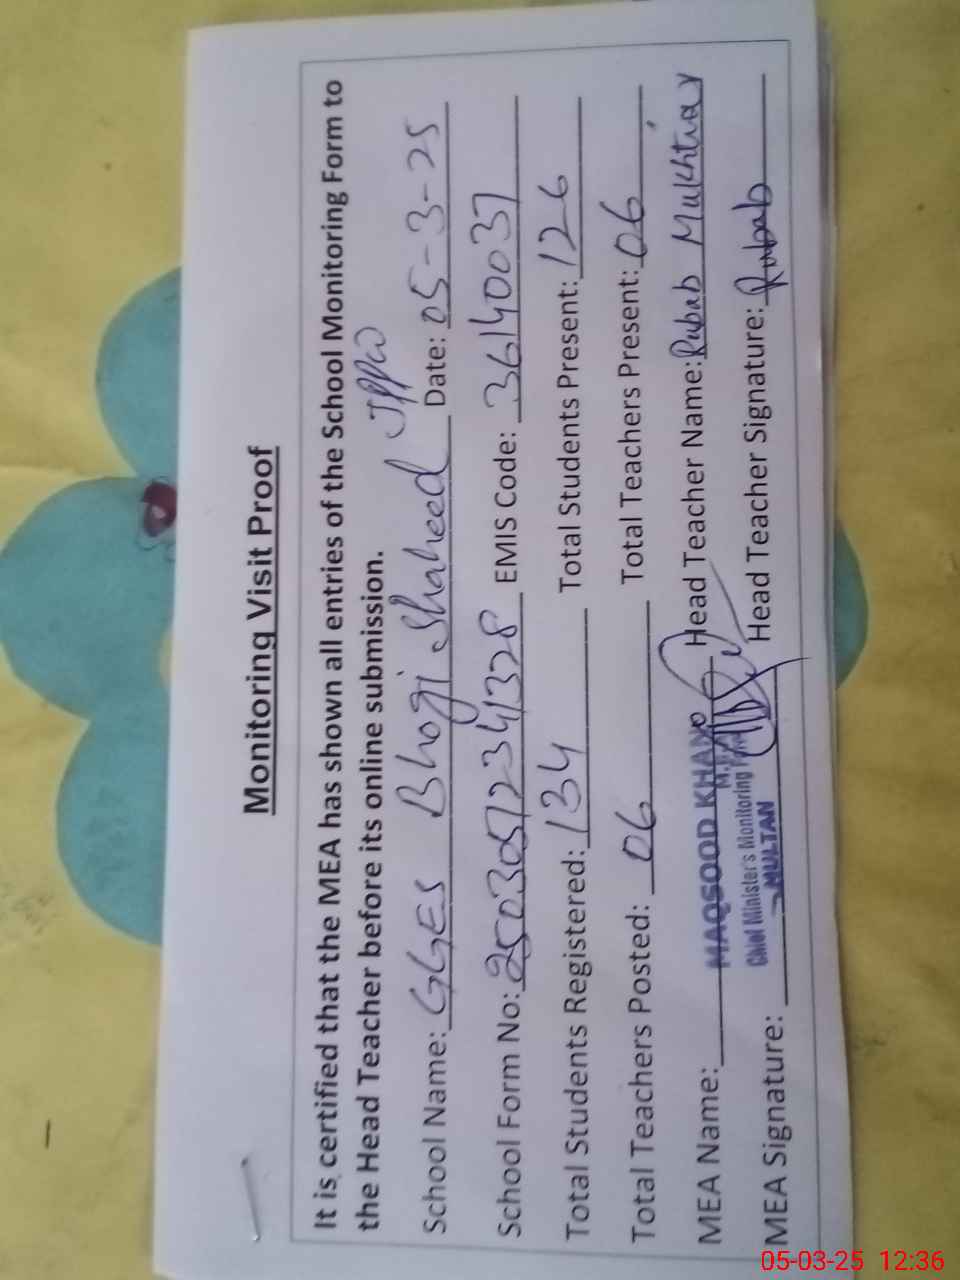 Monitoring Visit Proof
It is certified that the MEA has shown all entries of the School Monitoring Form to
the Head Teacher before its online submission.
School Name: GGES Bhogi Shaheed JPPW Date: 05-3-25
School Form No: 25030512341328 EMIS Code: 36140037
Total Students Registered: 134 Total Students Present: 126
Total Teachers Posted: 06 Total Teachers Present: 06
MEA Name: MAQSOOD KHAN Head Teacher Name: Rubab Mukhtiar
Chief Minister's Monitoring
MEA Signature: MULTAN Head Teacher Signature: Rubab
05-03-25 12:36